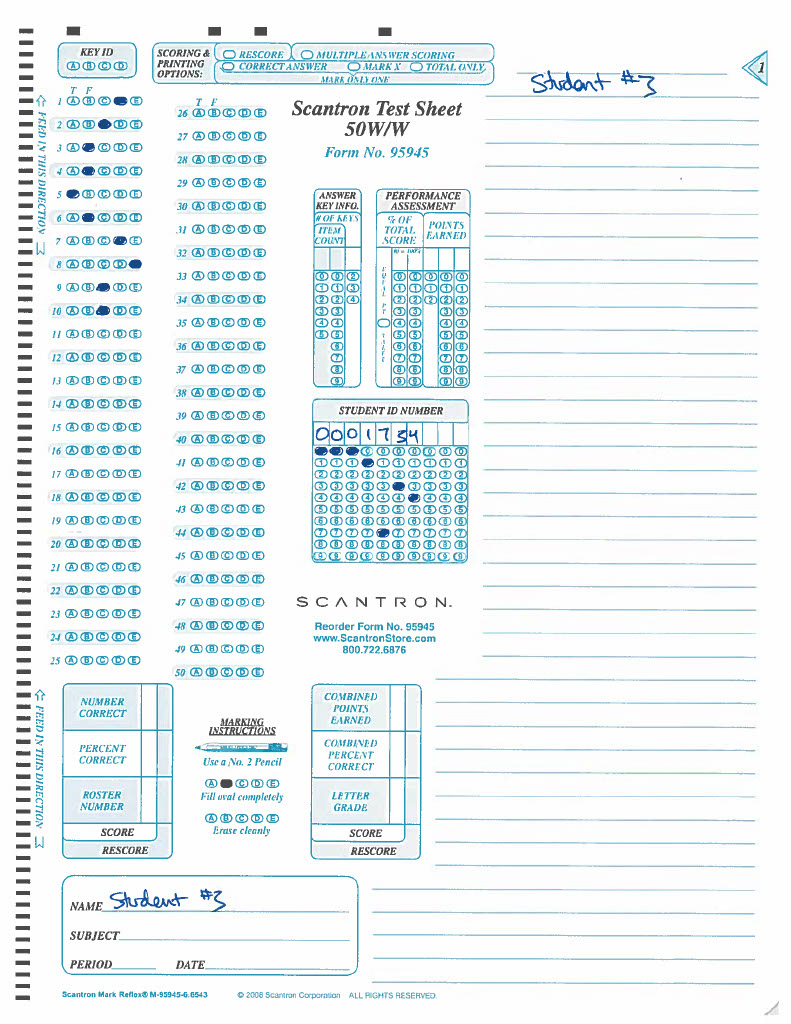 KEY ID
A B C D
SCORING & PRINTING OPTIONS:
RESCORE MULTIPLE-ANSWER SCORING
CORRECT ANSWER MARK X TOTAL ONLY
MARK ONLY ONE
1
Student #3
FEED IN THIS DIRECTION
T F
1 A B C E
2 A B D E
3 A C D E
4 A C D E
5 B C D E
6 A C D E
7 A B C E
8 A B C D
9 A B D E
10 A B D E
11 A B C D E
12 A B C D E
13 A B C D E
14 A B C D E
15 A B C D E
16 A B C D E
17 A B C D E
18 A B C D E
19 A B C D E
20 A B C D E
21 A B C D E
22 A B C D E
23 A B C D E
24 A B C D E
25 A B C D E
T F
26 A B C D E
27 A B C D E
28 A B C D E
29 A B C D E
30 A B C D E
31 A B C D E
32 A B C D E
33 A B C D E
34 A B C D E
35 A B C D E
36 A B C D E
37 A B C D E
38 A B C D E
39 A B C D E
40 A B C D E
41 A B C D E
42 A B C D E
43 A B C D E
44 A B C D E
45 A B C D E
46 A B C D E
47 A B C D E
48 A B C D E
49 A B C D E
50 A B C D E
Scantron Test Sheet
50W/W
Form No. 95945
ANSWER KEY INFO.
# OF KEYS
ITEM COUNT
0 0 2
1 1 3
2 2 4
3 3
4 4
5 5
6
7
8
9
PERFORMANCE ASSESSMENT
% OF TOTAL SCORE
POINTS EARNED
EQUAL PT VALUE
0 0 0 0 0
1 1 1 1 1
2 2 2 2 2
3 3 3 3
4 4 4 4
5 5 5 5
6 6 6 6
7 7 7 7
8 8 8 8
9 9 9 9
STUDENT ID NUMBER
0001734
0 0 0 0 0 0 0
1 1 1 1 1 1 1 1 1
2 2 2 2 2 2 2 2 2 2
3 3 3 3 3 3 3 3 3
4 4 4 4 4 4 4 4 4
5 5 5 5 5 5 5 5 5 5
6 6 6 6 6 6 6 6 6 6
7 7 7 7 7 7 7 7 7
8 8 8 8 8 8 8 8 8 8
9 9 9 9 9 9 9 9 9 9
SCANTRON.
Reorder Form No. 95945
www.ScantronStore.com
800.722.6876
FEED IN THIS DIRECTION
NUMBER CORRECT
PERCENT CORRECT
ROSTER NUMBER
SCORE
RESCORE
MARKING INSTRUCTIONS
Use a No. 2 Pencil
A C D E
Fill oval completely
A B C D E
Erase cleanly
COMBINED POINTS EARNED
COMBINED PERCENT CORRECT
LETTER GRADE
SCORE
RESCORE
NAME Student #3
SUBJECT
PERIOD DATE
Scantron Mark Reflex® M-95945-6:6543 © 2008 Scantron Corporation ALL RIGHTS RESERVED.